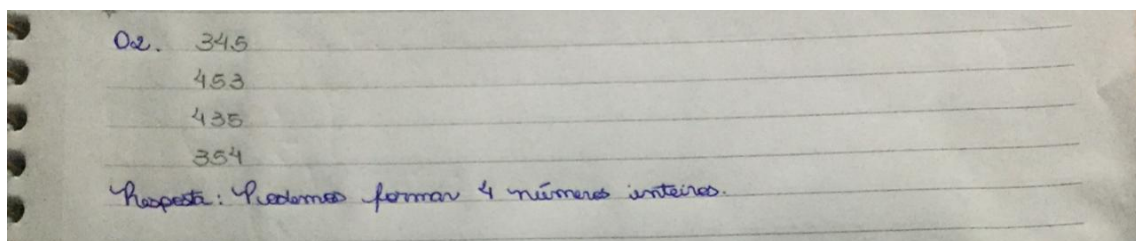 02. 345
453
435
354
Resposta: Podemos formar 4 números inteiros.